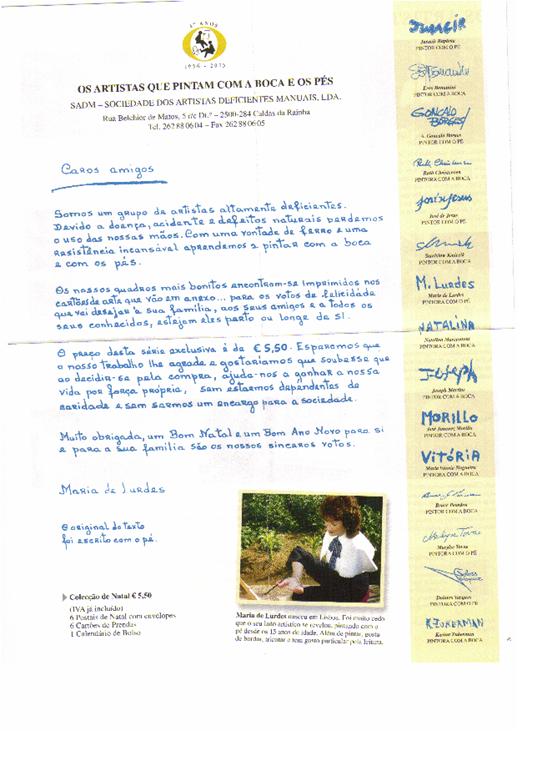 1956 - 2015
OS ARTISTAS QUE PINTAM COM A BOCA E OS PÉS
SADM – SOCIEDADE DOS ARTISTAS DEFICIENTES MANUAIS, LDA.
Rua Belchior de Matos, 5 r/c Dt.º – 2500-284 Caldas da Rainha
Tel. 262 88 06 04 – Fax 262 88 06 05
Caros amigos
Somos um grupo de artistas altamente deficientes.
Devido a doença, acidente e defeitos naturais perdemos
o uso das nossas mãos. Com uma vontade de ferro e uma
resistência incansável aprendemos a pintar com a boca
e com os pés.
Os nossos quadros mais bonitos encontram-se imprimidos nos
cartões de arte que vão em anexo... para os votos de felicidade
que vai desejar à sua família, aos seus amigos e a todos os
seus conhecidos, estejam eles perto ou longe de si.
O preço desta série exclusiva é de € 5,50. Esperamos que
o nosso trabalho lhe agrade e gostaríamos que soubesse que
ao decidir-se pela compra, ajuda-nos a ganhar a nossa
vida por força própria, sem estarmos dependentes de
caridade e sem sermos um encargo para a sociedade.
Muito obrigada, um Bom Natal e um Bom Ano Novo para si
e para a sua família são os nossos sinceros votos.
Maria de Lurdes
O original do texto
foi escrito com o pé.
Colecção de Natal € 5,50
(IVA já incluído)
6 Postais de Natal com envelopes
6 Cartões de Prendas
1 Calendário de Bolso
Maria de Lurdes nasceu em Lisboa. Foi muito cedo
que o seu lado artístico se revelou, pintando com o
pé desde os 15 anos de idade. Além de pintar, gosta
de bordar, tricotar e tem gosto particular pela leitura.
PINTOR COM O PÉ
PINTOR COM A BOCA
GONÇALO
BORGES
PINTOR COM A BOCA
Ruth Christensen
PINTORA COM A BOCA
José de Jesus
PINTOR COM O PÉ
PINTOR COM A BOCA
M. Lurdes
Maria de Lurdes
PINTORA COM O PÉ
NATALINA
PINTORA COM A BOCA
Joseph
PINTOR COM A BOCA
MORILLO
PINTOR COM A BOCA
VITÓRIA
PINTORA COM A BOCA
PINTOR COM A BOCA
PINTORA COM O PÉ
PINTORA COM A BOCA
K. ZUKERMAN
PINTORA COM A BOCA